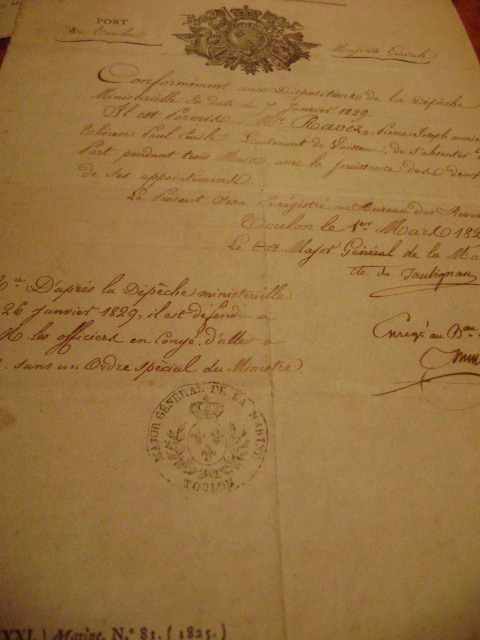 PORT
de Toulon
Majorité Générale
Conformément aux Dispositions de la Dépêche
Ministérielle En date du 7 Janvier 1829.
Il est Permis à Mr. Ravez Pierre Joseph
Paul Emile Lieutenant de Vaisseau, de s'absenter
Port pendant trois Mois avec la Jouissance des deux
de ses appointemens.
Le Présent Sera Enregistré au Bureau des Revues
Toulon le 1er Mars 182
Le CA Major Général de la Ma
D'après la Dépêche ministérielle
26 Janvier 1829, il est défendu à
M. les officiers en Congé, d'aller à
sans un Ordre spécial du Ministre
Enregé au Bau
MAJOR GÉNÉRAL DE LA MARINE
TOULON
XXI.) Marine. N.° 81. (1825.)